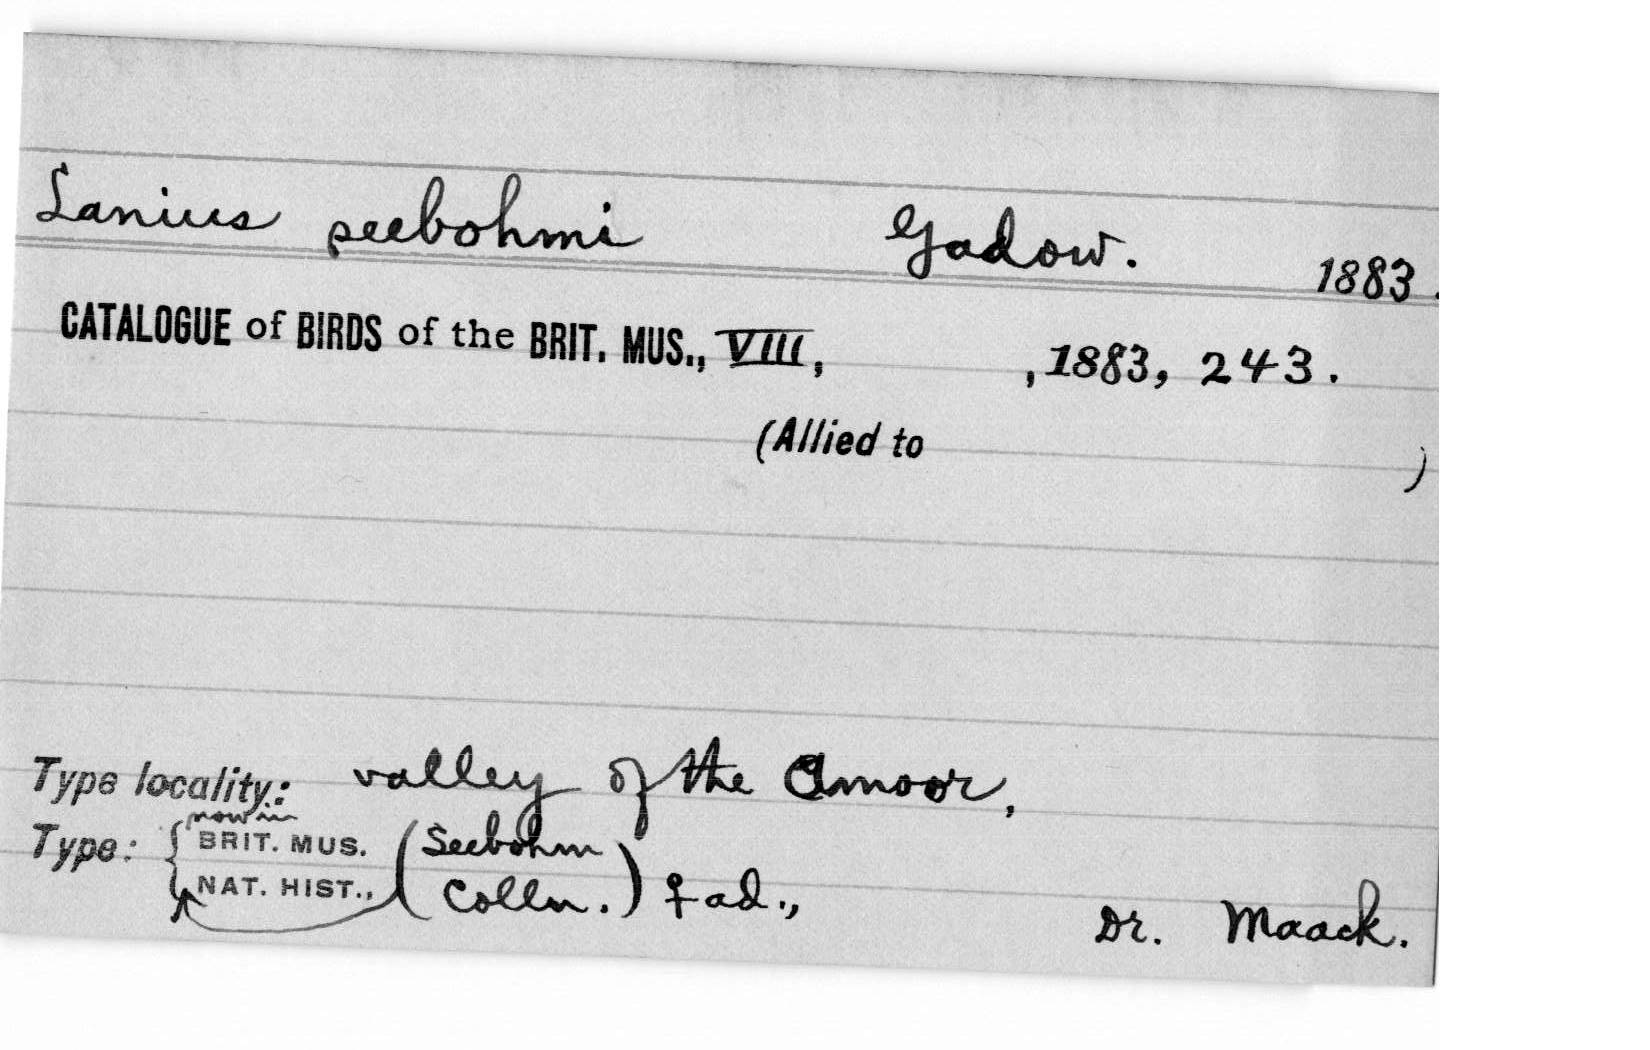 Lanius seebohmi Gadow. 1883.
CATALOGUE of BIRDS of the BRIT. MUS., VIII, , 1883, 243.
(Allied to )
Type locality: valley of the Amoor,
now in
Type: { BRIT. MUS. (Seebohm
NAT. HIST., Colln.) ♀ ad., Dr. Maack.